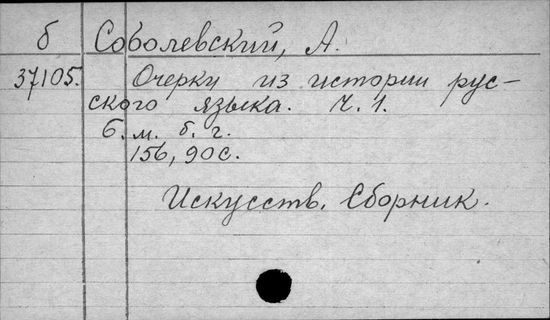 б Соболевский, А.
37105. Очерки из истории рус-
ского языка. Ч. 1.
б. м. б. г.
156, 90 с.
Искусств. Сборник.